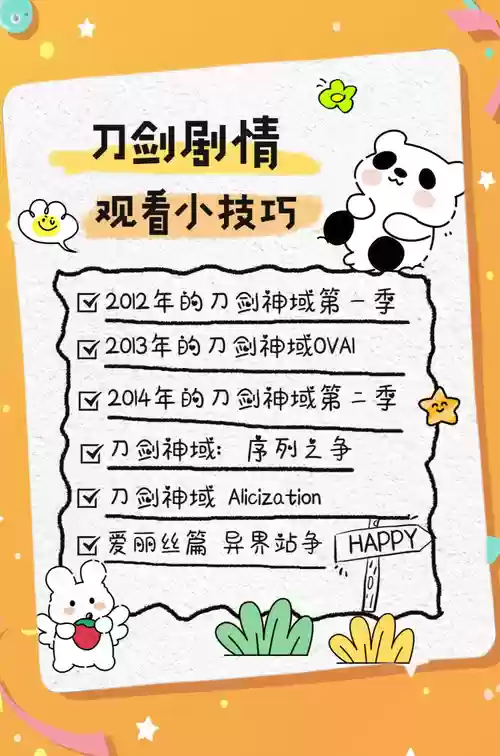 刀剑剧情
观看小技巧
2012年的刀剑神域第一季
2013年的刀剑神域OVA1
2014年的刀剑神域第二季
刀剑神域：序列之争
刀剑神域 Alicization
爱丽丝篇 异界站争
HAPPY